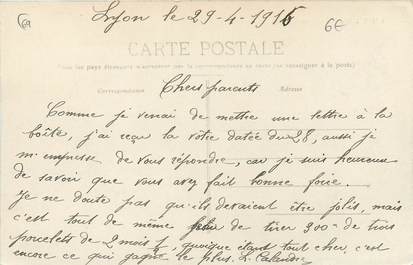 Lyon le 29-4-1915
6€
CARTE POSTALE
Tous les pays étrangers n'acceptent pas la correspondance au recto (se renseigner à la poste)
Correspondance
Adresse
Chers parents
Comme je venai de mettre une lettre à la
boîte, j'ai reçu la votre datée du 28, aussi je
m'empresse de vous répondre, car je suis heureuse
de savoir que vous avez fait bonne foire.
Je ne doute pas qu'ils devaient être jolis, mais
c'est tout de même de tirer 300 de trois
porcelets de 2 mois ½, quoique étant tout cher, c'est
encore ce qui gagne le plus.